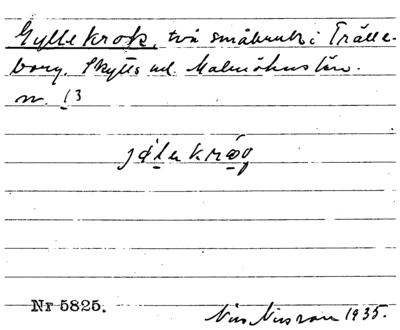 Gyllekrok, två småbruk i Trälle-
borg. Skytts hd. Malmöhus län.
nr. 13
jálekrǫg
Nr 5825.
Nils Nilsson 1935.